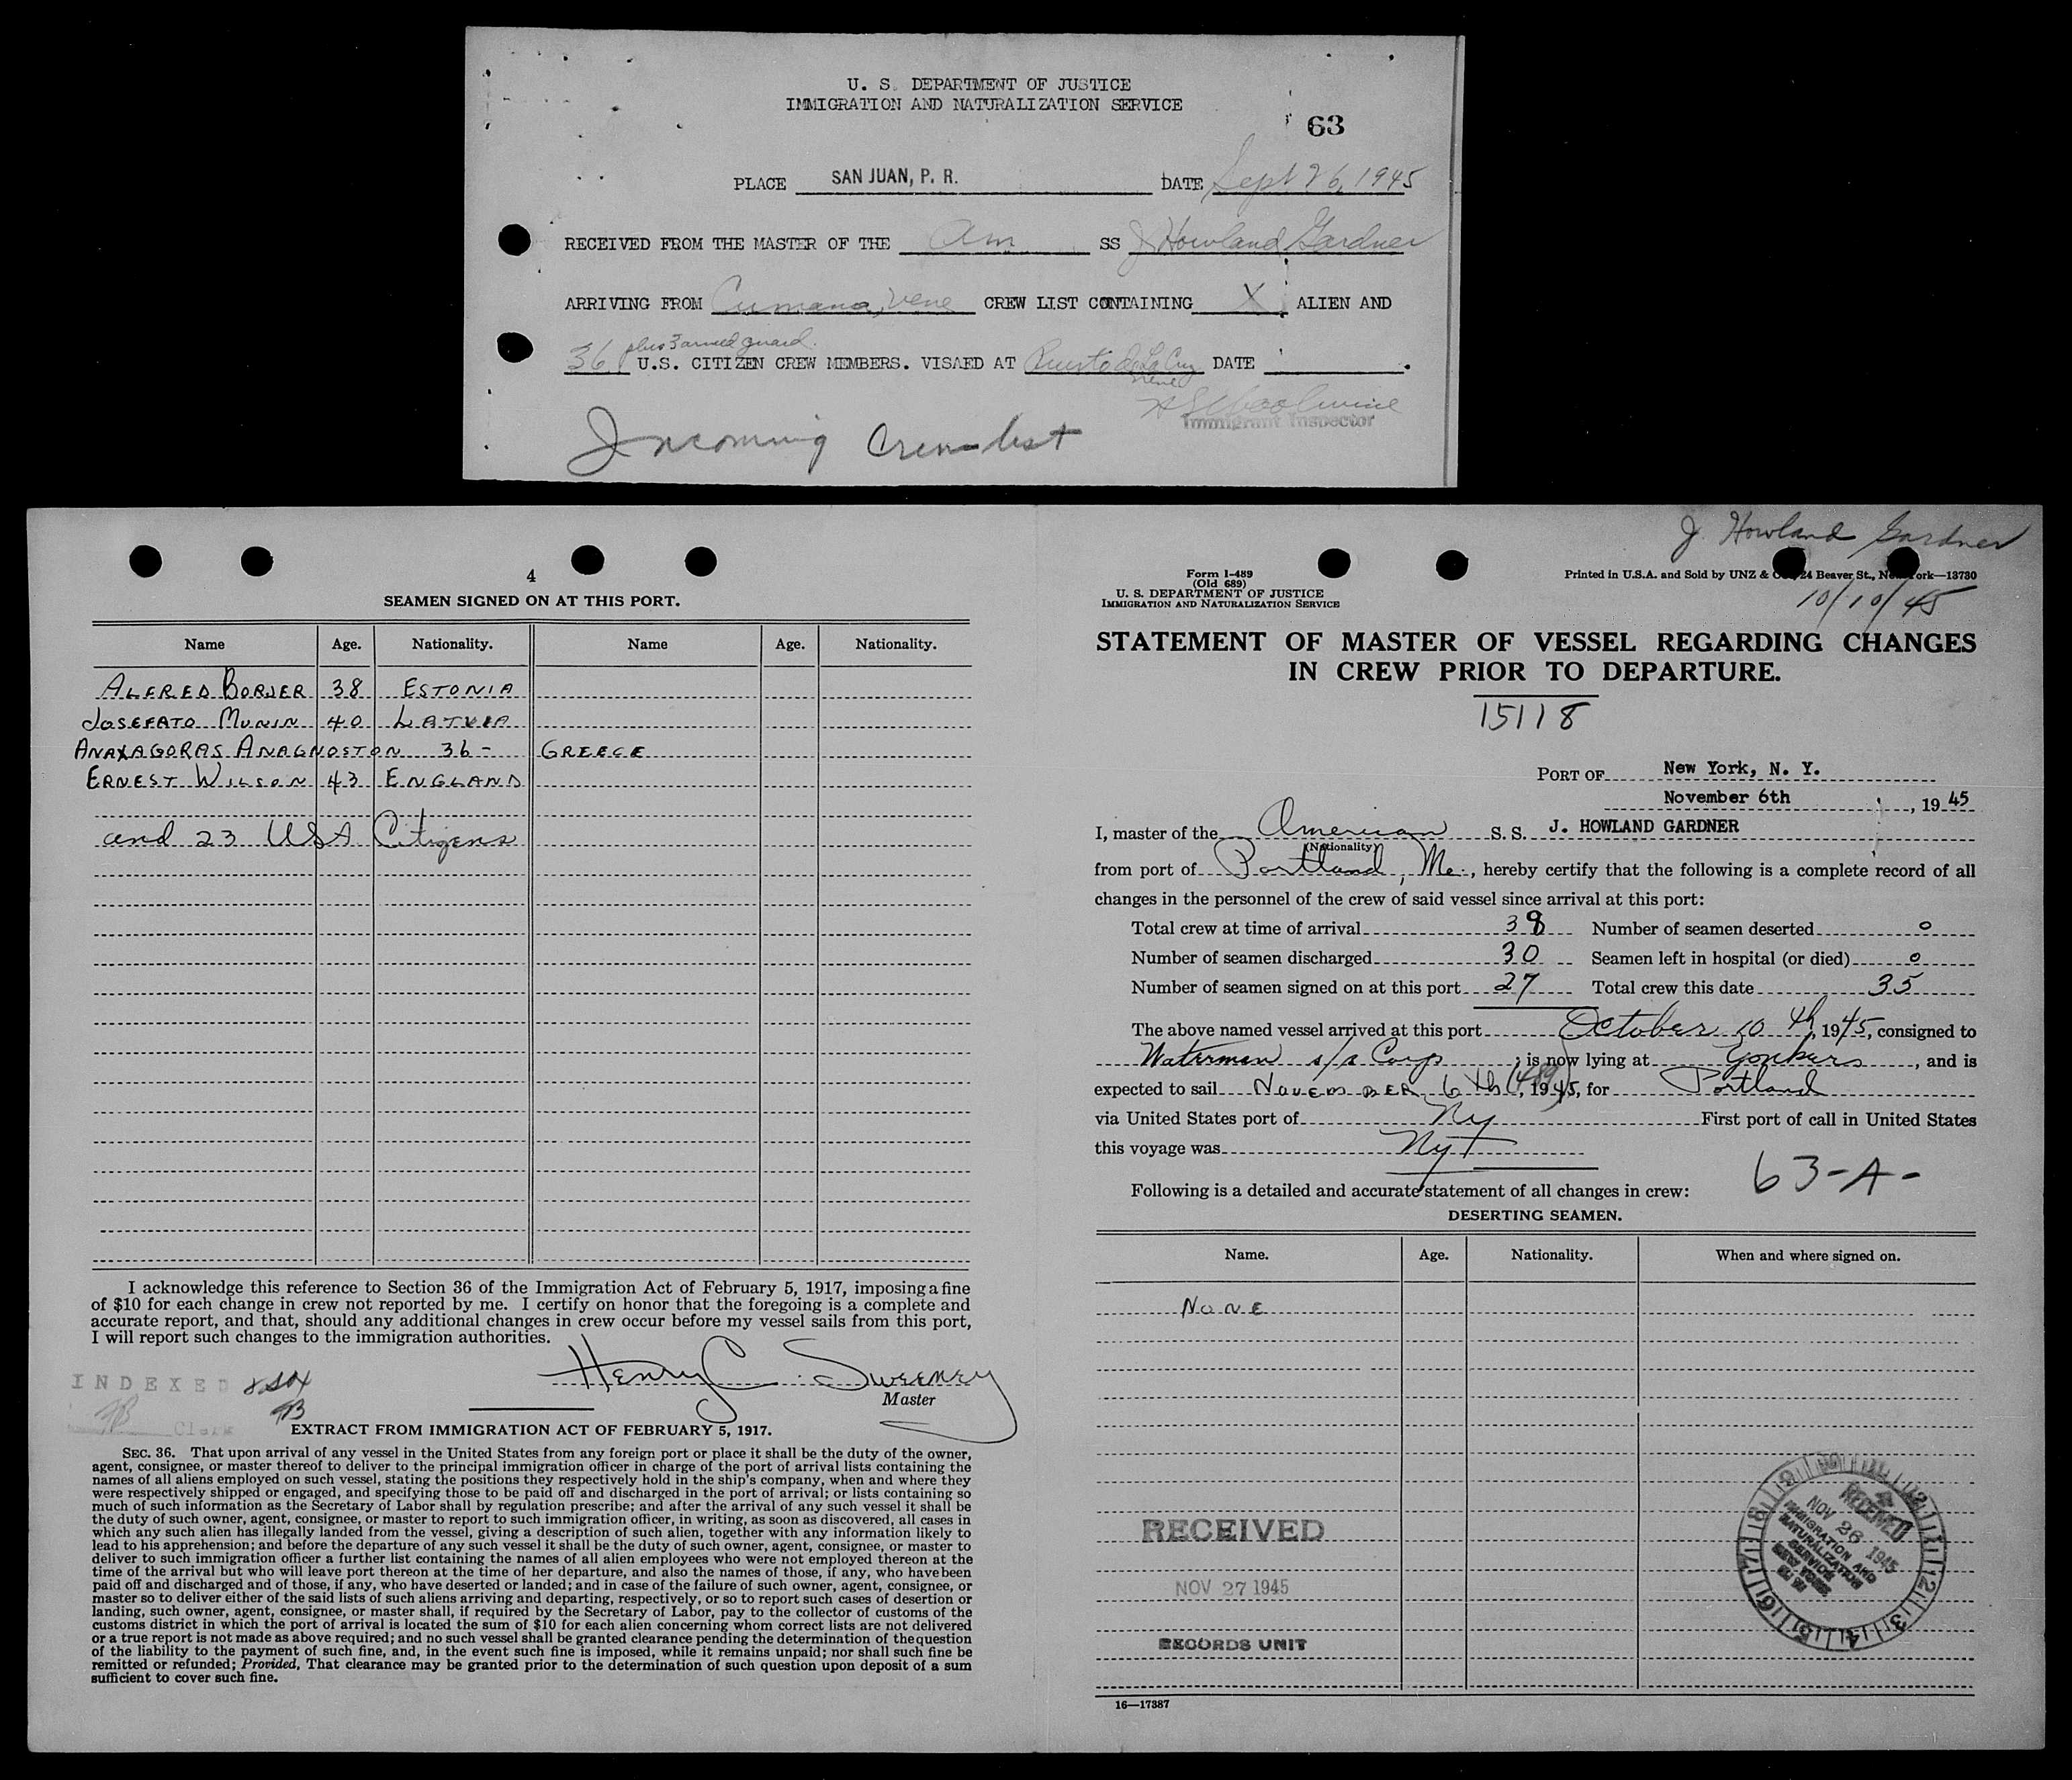 U. S. DEPARTMENT OF JUSTICE
IMMIGRATION AND NATURALIZATION SERVICE
63
PLACE SAN JUAN, P. R. DATE Sept 26, 1945
RECEIVED FROM THE MASTER OF THE Am SS J Howland Gardner
ARRIVING FROM Cumana, Vene CREW LIST CONTAINING X ALIEN AND
plus 3 armed guard.
36 U.S. CITIZEN CREW MEMBERS. VISAED AT Puerto de La Cruz DATE .
Vene
Immigrant Inspector
Incoming Crew list
4
SEAMEN SIGNED ON AT THIS PORT.
Name Age. Nationality. Name Age. Nationality.
ALFRED 38 ESTONIA
JOSEFATO MUNIN 40 LATVIA
ANAXAGORAS ANAGNOSTON 36- GREECE
ERNEST WILSON 43 ENGLAND
and 23 USA Citizens
I acknowledge this reference to Section 36 of the Immigration Act of February 5, 1917, imposing a fine
of $10 for each change in crew not reported by me. I certify on honor that the foregoing is a complete and
accurate report, and that, should any additional changes in crew occur before my vessel sails from this port,
I will report such changes to the immigration authorities.
INDEXED
Henry C. Sweeney
Master
Clerk
EXTRACT FROM IMMIGRATION ACT OF FEBRUARY 5, 1917.
SEC. 36. That upon arrival of any vessel in the United States from any foreign port or place it shall be the duty of the owner,
agent, consignee, or master thereof to deliver to the principal immigration officer in charge of the port of arrival lists containing the
names of all aliens employed on such vessel, stating the positions they respectively hold in the ship's company, when and where they
were respectively shipped or engaged, and specifying those to be paid off and discharged in the port of arrival; or lists containing so
much of such information as the Secretary of Labor shall by regulation prescribe; and after the arrival of any such vessel it shall be
the duty of such owner, agent, consignee, or master to report to such immigration officer, in writing, as soon as discovered, all cases in
which any such alien has illegally landed from the vessel, giving a description of such alien, together with any information likely to
lead to his apprehension; and before the departure of any such vessel it shall be the duty of such owner, agent, consignee, or master to
deliver to such immigration officer a further list containing the names of all alien employees who were not employed thereon at the
time of the arrival but who will leave port thereon at the time of her departure, and also the names of those, if any, who have been
paid off and discharged and of those, if any, who have deserted or landed; and in case of the failure of such owner, agent, consignee, or
master so to deliver either of the said lists of such aliens arriving and departing, respectively, or so to report such cases of desertion or
landing, such owner, agent, consignee, or master shall, if required by the Secretary of Labor, pay to the collector of customs of the
customs district in which the port of arrival is located the sum of $10 for each alien concerning whom correct lists are not delivered
or a true report is not made as above required; and no such vessel shall be granted clearance pending the determination of the question
of the liability to the payment of such fine, and, in the event such fine is imposed, while it remains unpaid; nor shall such fine be
remitted or refunded; Provided, That clearance may be granted prior to the determination of such question upon deposit of a sum
sufficient to cover such fine.
J. Howland Gardner
10/10/45
Form I-489
(Old 689)
U. S. DEPARTMENT OF JUSTICE
IMMIGRATION AND NATURALIZATION SERVICE
Printed in U.S.A. and Sold by UNZ & 24 Beaver St., New York—13730
STATEMENT OF MASTER OF VESSEL REGARDING CHANGES
IN CREW PRIOR TO DEPARTURE.
15118
PORT OF New York, N. Y.
November 6th, 1945
I, master of the American S. S. J. HOWLAND GARDNER
(Nationality)
from port of Portland, Me., hereby certify that the following is a complete record of all
changes in the personnel of the crew of said vessel since arrival at this port:
Total crew at time of arrival 38 Number of seamen deserted 0
Number of seamen discharged 30 Seamen left in hospital (or died) 0
Number of seamen signed on at this port 27 Total crew this date 35
The above named vessel arrived at this port October 10 th, 1945, consigned to
Waterman s/s Corp; is now lying at Yonkers, and is
expected to sail NOVEMBER 6th (489), 1945, for Portland
via United States port of Ny First port of call in United States
this voyage was Ny
63-A-
Following is a detailed and accurate statement of all changes in crew:
DESERTING SEAMEN.
Name. Age. Nationality. When and where signed on.
NONE
RECEIVED
NOV 27 1945
RECORDS UNIT
RECEIVED
NOV 26 1945
IMMIGRATION AND
NATURALIZATION
SERVICE
NEW YORK
16—17387